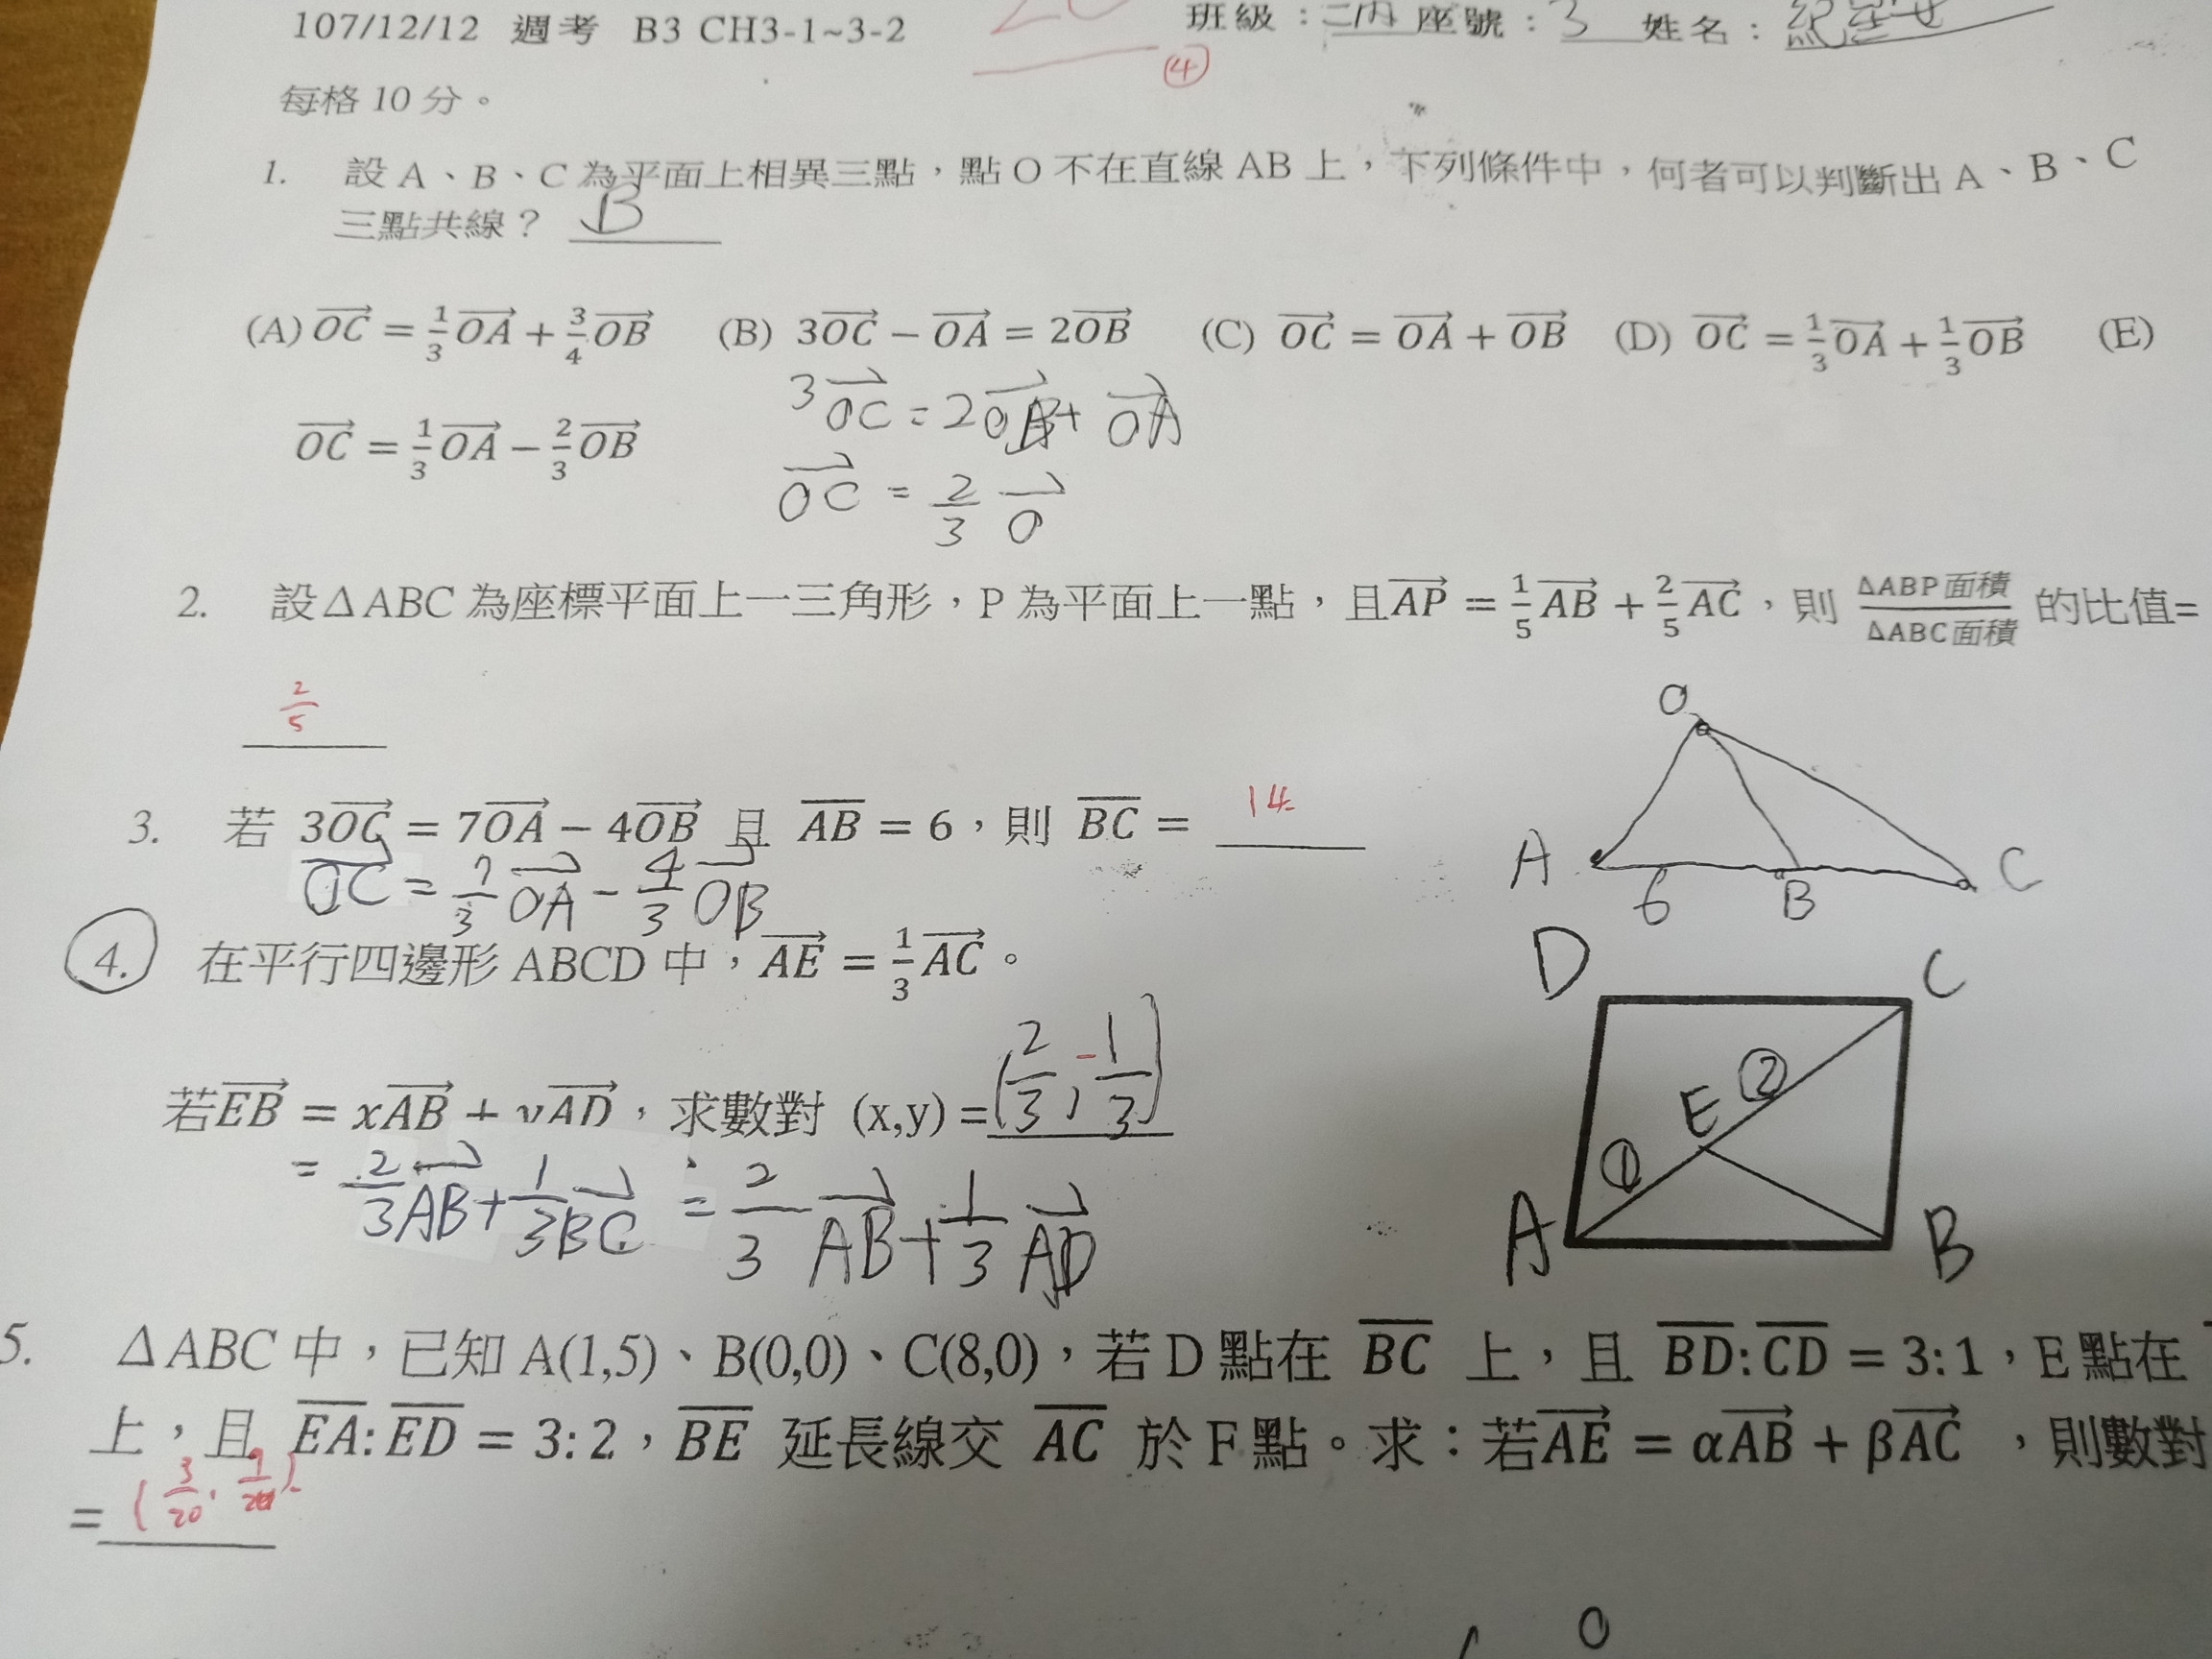 107/12/12 週考 B3 CH3-1~3-2 班級：二丙 座號：3 姓名：紀
④
每格 10 分。
1. 設 A、B、C 為平面上相異三點，點 O 不在直線 AB 上，下列條件中，何者可以判斷出 A、B、C
三點共線？ B
(A) $\overrightarrow{OC} = \frac{1}{3}\overrightarrow{OA} + \frac{3}{4}\overrightarrow{OB}$ (B) $3\overrightarrow{OC} - \overrightarrow{OA} = 2\overrightarrow{OB}$ (C) $\overrightarrow{OC} = \overrightarrow{OA} + \overrightarrow{OB}$ (D) $\overrightarrow{OC} = \frac{1}{3}\overrightarrow{OA} + \frac{1}{3}\overrightarrow{OB}$ (E)
$3\overrightarrow{OC} = 2\overrightarrow{OB} + \overrightarrow{OA}$
$\overrightarrow{OC} = \frac{1}{3}\overrightarrow{OA} - \frac{2}{3}\overrightarrow{OB}$
$\overrightarrow{OC} = \frac{2}{3}\overrightarrow{O}$
2. 設 ΔABC 為座標平面上一三角形，P 為平面上一點，且 $\overrightarrow{AP} = \frac{1}{5}\overrightarrow{AB} + \frac{2}{5}\overrightarrow{AC}$，則 $\frac{ΔABP面積}{ΔABC面積}$ 的比值=
$\frac{2}{5}$
O
A 6 B C
3. 若 $3\overrightarrow{OC} = 7\overrightarrow{OA} - 4\overrightarrow{OB}$ 且 $\overline{AB} = 6$，則 $\overline{BC} =$ 14
$\overrightarrow{OC} = \frac{7}{3}\overrightarrow{OA} - \frac{4}{3}\overrightarrow{OB}$
4. 在平行四邊形 ABCD 中，$\overrightarrow{AE} = \frac{1}{3}\overrightarrow{AC}$。
若$\overrightarrow{EB} = x\overrightarrow{AB} + y\overrightarrow{AD}$，求數對 (x,y) = $(\frac{2}{3}, -\frac{1}{3})$
$= \frac{2}{3}\overrightarrow{AB} + \frac{1}{3}\overrightarrow{BC} = \frac{2}{3}\overrightarrow{AB} + \frac{1}{3}\overrightarrow{AD}$
D C
E ②
①
A B
5. ΔABC 中，已知 A(1,5)、B(0,0)、C(8,0)，若 D 點在 $\overline{BC}$ 上，且 $\overline{BD}:\overline{CD} = 3:1$，E 點在
上，且 $\overline{EA}:\overline{ED} = 3:2$，$\overline{BE}$ 延長線交 $\overline{AC}$ 於 F 點。求：若$\overrightarrow{AE} = α\overrightarrow{AB} + β\overrightarrow{AC}$ ，則數對
= $(\frac{3}{20}, \frac{9}{20})$
O